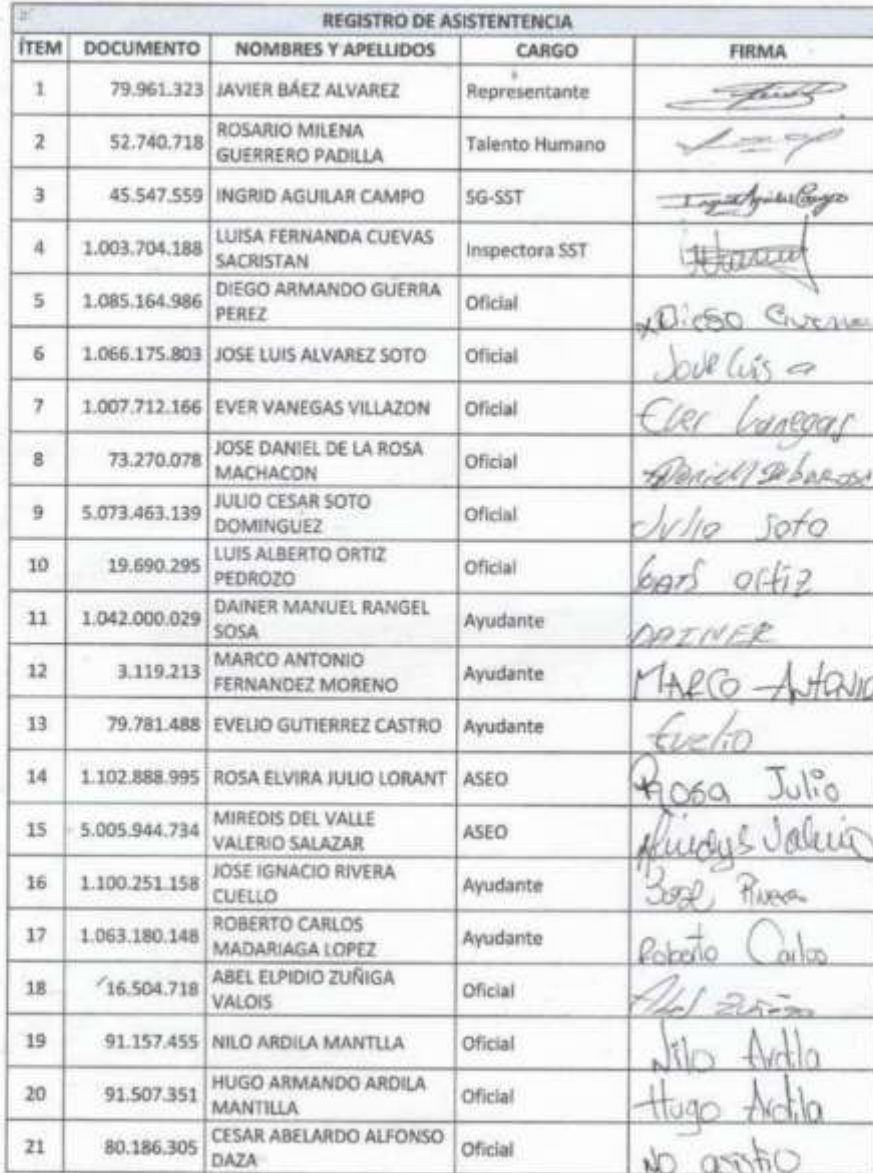 REGISTRO DE ASISTENTENCIA
ÍTEM DOCUMENTO NOMBRES Y APELLIDOS CARGO FIRMA
1 79.961.323 JAVIER BÁEZ ALVAREZ Representante
2 52.740.718 ROSARIO MILENA GUERRERO PADILLA Talento Humano
3 45.547.559 INGRID AGUILAR CAMPO SG-SST Ingrid Aguilar Campo
4 1.003.704.188 LUISA FERNANDA CUEVAS SACRISTAN Inspectora SST
5 1.085.164.986 DIEGO ARMANDO GUERRA PEREZ Oficial Diego Guerra
6 1.066.175.803 JOSE LUIS ALVAREZ SOTO Oficial Jose Luis a
7 1.007.712.166 EVER VANEGAS VILLAZON Oficial Ever Vanegas
8 73.270.078 JOSE DANIEL DE LA ROSA MACHACON Oficial
9 5.073.463.139 JULIO CESAR SOTO DOMINGUEZ Oficial Julio Soto
10 19.690.295 LUIS ALBERTO ORTIZ PEDROZO Oficial ortiz
11 1.042.000.029 DAINER MANUEL RANGEL SOSA Ayudante DAINER
12 3.119.213 MARCO ANTONIO FERNANDEZ MORENO Ayudante MARCO ANTONIO
13 79.781.488 EVELIO GUTIERREZ CASTRO Ayudante Evelio
14 1.102.888.995 ROSA ELVIRA JULIO LORANT ASEO Rosa Julio
15 5.005.944.734 MIREDIS DEL VALLE VALERIO SALAZAR ASEO
16 1.100.251.158 JOSE IGNACIO RIVERA CUELLO Ayudante Jose Rivera
17 1.063.180.148 ROBERTO CARLOS MADARIAGA LOPEZ Ayudante Roberto Carlos
18 16.504.718 ABEL ELPIDIO ZUÑIGA VALOIS Oficial Abel Zuñiga
19 91.157.455 NILO ARDILA MANTLLA Oficial Nilo Ardila
20 91.507.351 HUGO ARMANDO ARDILA MANTILLA Oficial Hugo Ardila
21 80.186.305 CESAR ABELARDO ALFONSO DAZA Oficial No asistio